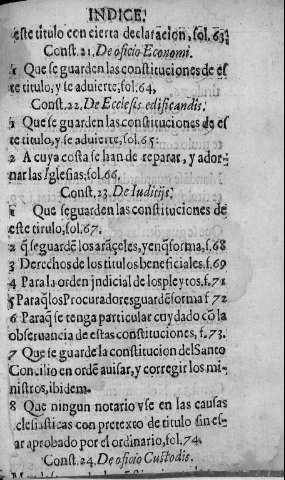 INDICE.
este titulo con cierta declaracion, fol. 63.
Const. 21. De oficio Economi.
1 Que se guarden las constituciones de es
te titulo, y se advierte, fol. 64,
Const. 22. De Ecclesis edificandis.
1 Que se guarden las constituciones de es
te titulo, y se advierte, fol. 65.
2 A cuya costa se han de reparar, y ador-
nar las Iglesias, fol. 66.
Const. 23. De Iudicijs.
1 Que se guarden las constituciones de
este titulo, fol. 67.
2 q̃ se guardẽ los arãçeles, y en q̃ forma, f. 68
3 Derechos de los titulos beneficiales. f. 69
4 Para la orden judicial de los pleytos. f. 71
5 Paraq̃ los Procuradores guardẽ forma f 72
6 Paraq̃ se tenga particular cuydado cõ la
observancia de estas constituciones, f. 73.
7 Que se guarde la constitucion del Santo
Concilio en ordẽ avisar, y corregir los mi-
nistros, ibidem.
8 Que ningun notario vse en las causas
eclesiasticas con pretexto de titulo sin es-
ar aprobado por el ordinario, fol. 74.
Const. 24. De oficio Custodis.